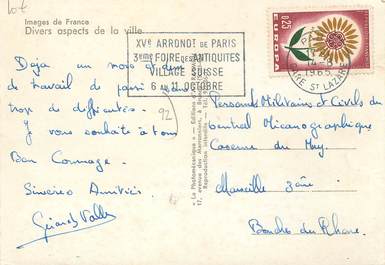 lot
Images de France
Divers aspects de la ville
XVe ARRONDT DE PARIS
3eme FOIRE DES ANTIQUITES
VILLAGE SUISSE
6 AU 11 OCTOBRE
0,25
EUROPA
1965
GARE ST LAZARE
92
Deja un mois et demi
de travail de passé
trop de difficultés.
Je vous souhaite à tous
Bon Courage.
Sincères Amitiés
Personnels Militaires et Civils du
Central Mécanographique
Caserne du Muy.
Marseille 3ème
Bouches du Rhône
« La Photomécanique » - Editions
17, avenue des Marronniers
Reproduction interdite.